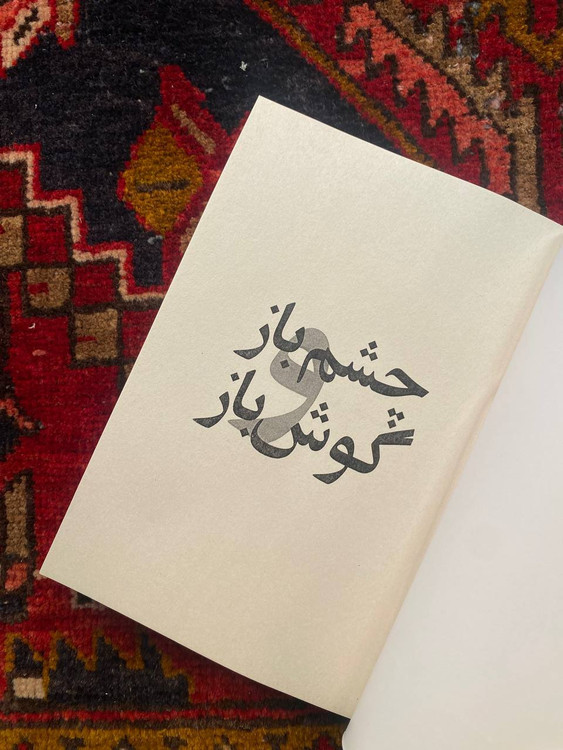 چشم‌باز
و
گوش‌باز